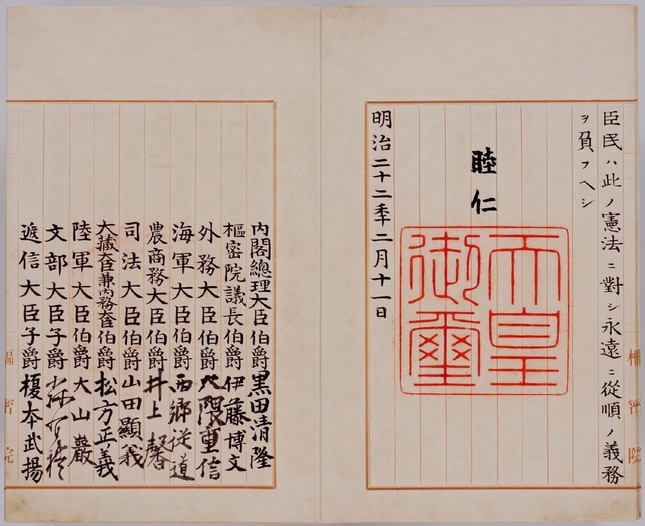 臣民ハ此ノ憲法ニ對シ永遠ニ從順ノ義務
ヲ負フヘシ
睦仁
天皇
御璽
明治二十二年二月十一日
樞密院
內閣總理大臣伯爵黑田清隆
樞密院議長伯爵伊藤博文
外務大臣伯爵大隈重信
海軍大臣伯爵西鄉從道
農商務大臣伯爵井上馨
司法大臣伯爵山田顯義
大藏大臣兼內務大臣伯爵松方正義
陸軍大臣伯爵大山巖
文部大臣子爵森有禮
遞信大臣子爵榎本武揚
樞密院